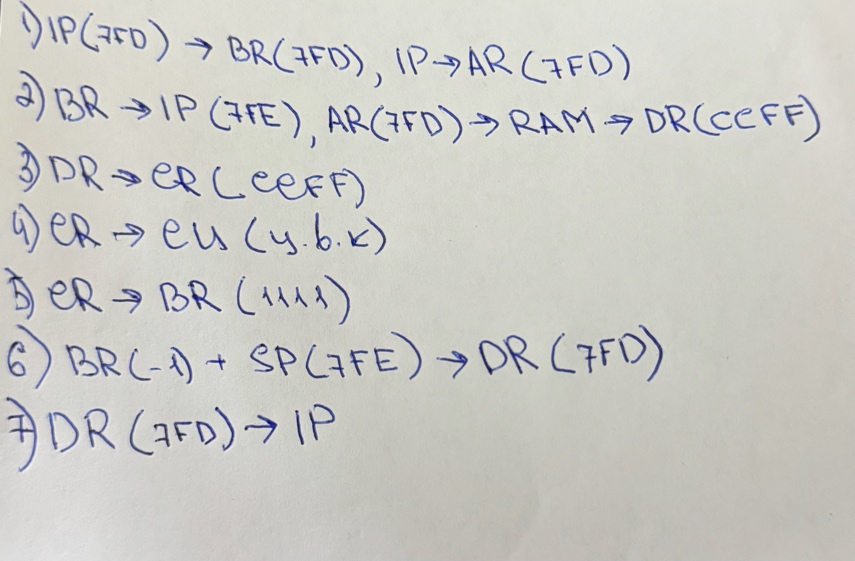 1) IP(7FD) → BR(7FD), IP→AR(7FD)
2) BR → IP(7FE), AR(7FD)→ RAM → DR(CEFF)
3) DR → CR(CEFF)
4) CR → CU (у.в.к)
5) CR → BR (1111)
6) BR(-1) + SP(7FE) → DR(7FD)
7) DR(7FD)→ IP